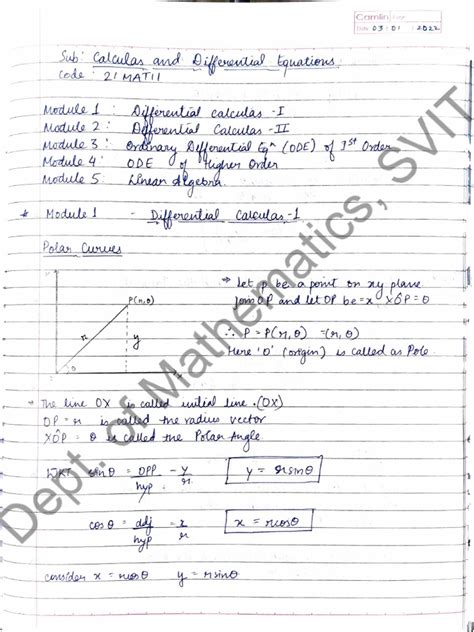 Camlin Page
Date 03 / 01 / 2022
Sub: Calculas and Differential Equations
Code: 21MAT11
Module 1 : Differential calculas - I
Module 2 : Differential Calculas - II
Module 3 : Ordinary Differential Eqⁿ (ODE) of Ist Order
Module 4 : ODE of Higher Order
Module 5 : Linear Algebra.
* Module 1 - Differential Calculas - 1
Polar Curves
→ Let p be a point on xy plane
Join OP and let OP be = r XÔP = θ
∴ P = P(r, θ) = (r, θ)
Here 'O' (origin) is called as Pole.
P(r, θ)
r
y
θ
→ The line OX is called initial line. (OX)
OP = r is called the radius vector
XÔP = θ is called the Polar Angle
WKT sinθ = opp/hyp = y/r y = rsinθ
cosθ = adj/hyp = x/r x = rcosθ
consider x = rcosθ y = rsinθ
Dept. of Mathematics, SVIT